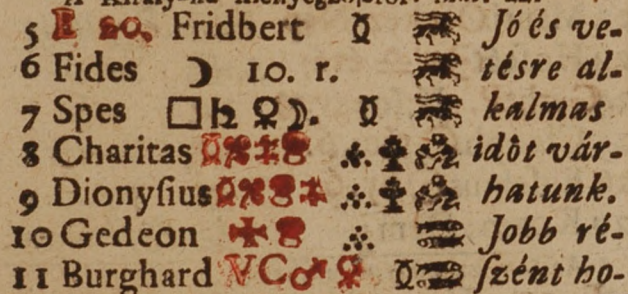 5 E 20. Fridbert ☿ Jó és ve-
6 Fides ☽ 10. r. tésre al-
7 Spes □ ♄ ♀ ☽. ☿ kalmas
8 Charitas idôt vár-
9 Dionyſius hatunk.
10 Gedeon Jobb ré-
11 Burghard VC♂ ♀ ☿ ſzént ho-